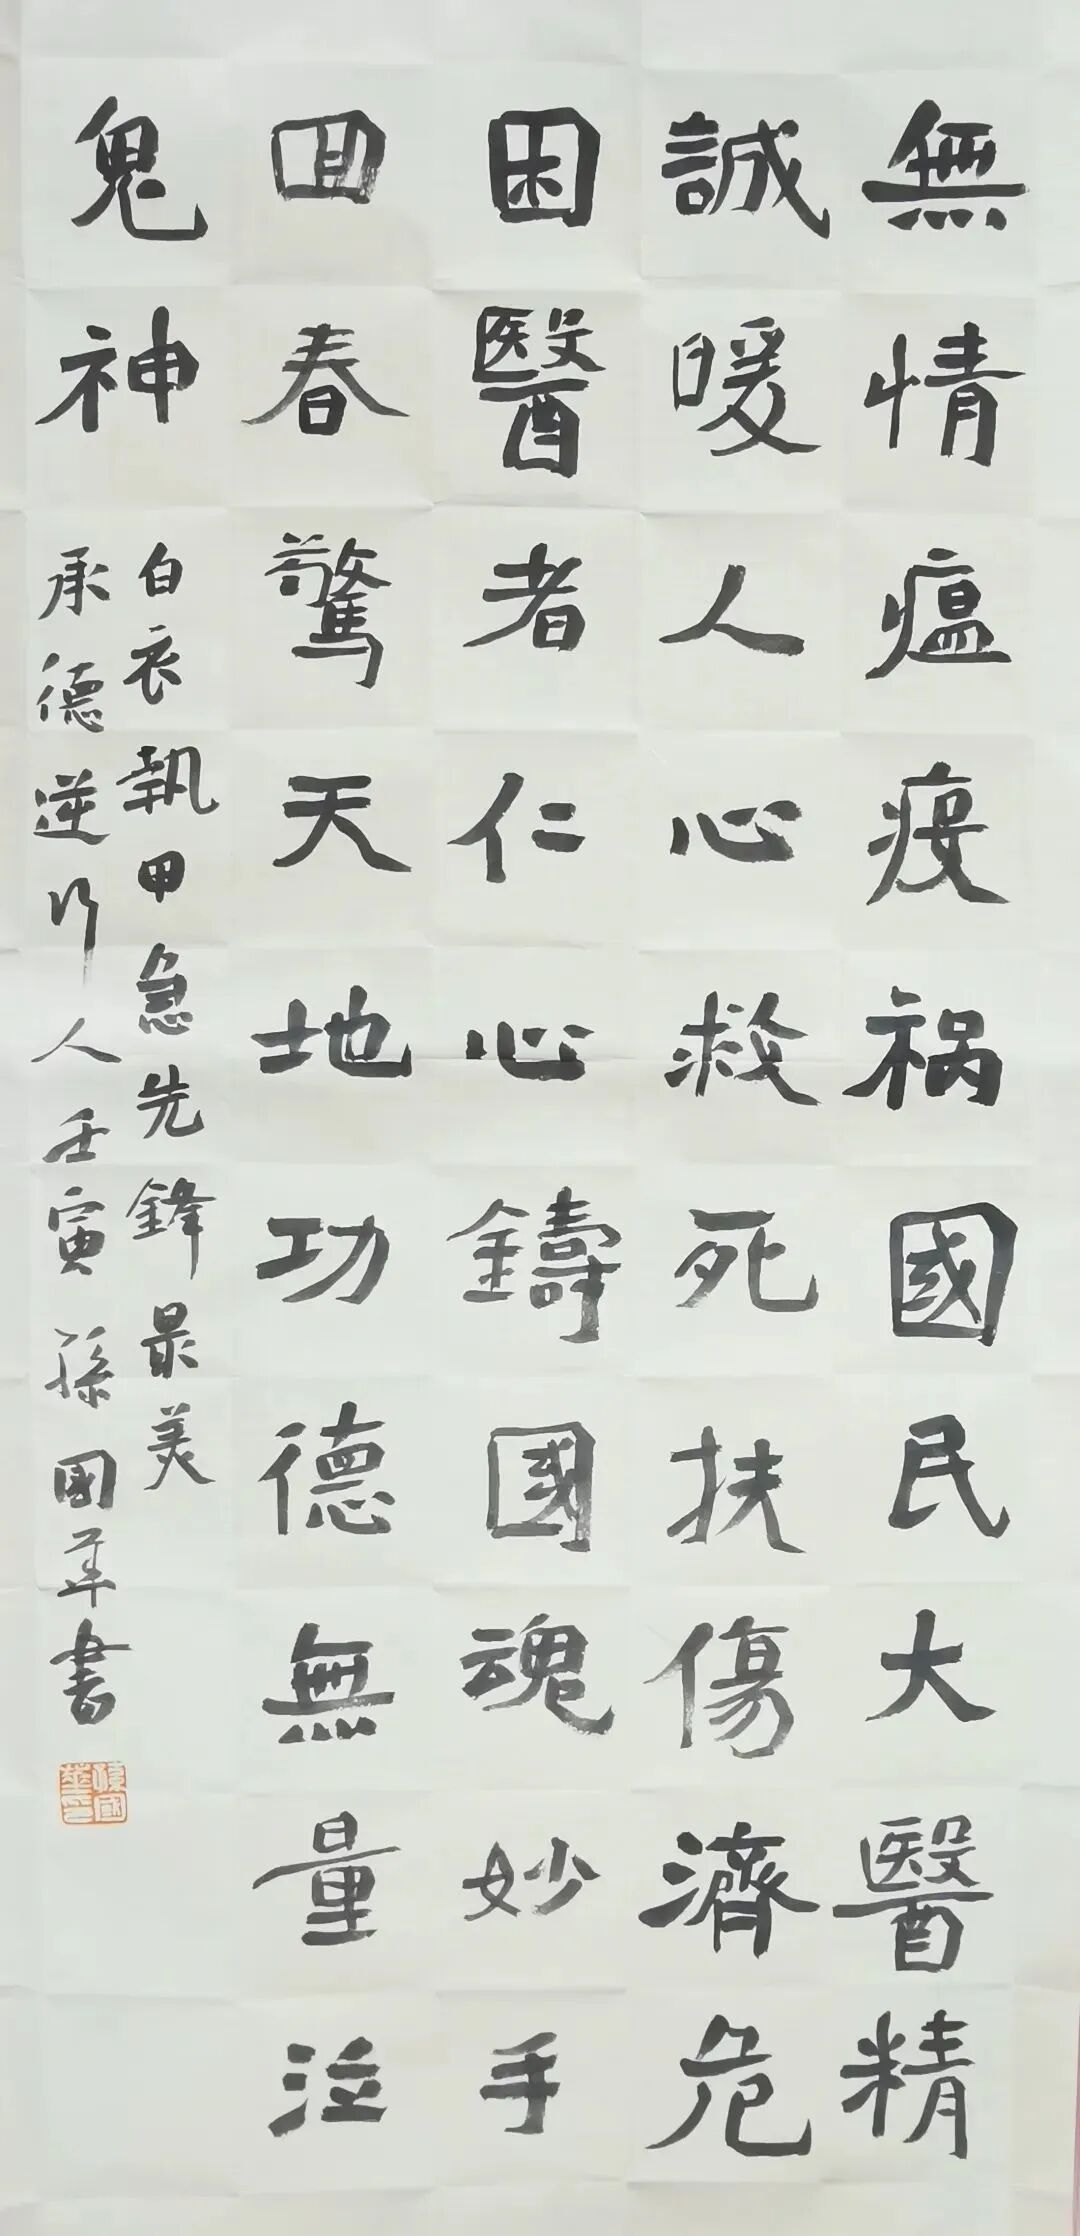 無情瘟疫祸國民大醫精
誠暖人心救死扶傷濟危
困醫者仁心鑄國魂妙手
回春驚天地功德無量泣
鬼神
白衣執甲急先鋒最美
承德逆行人壬寅孫國华書